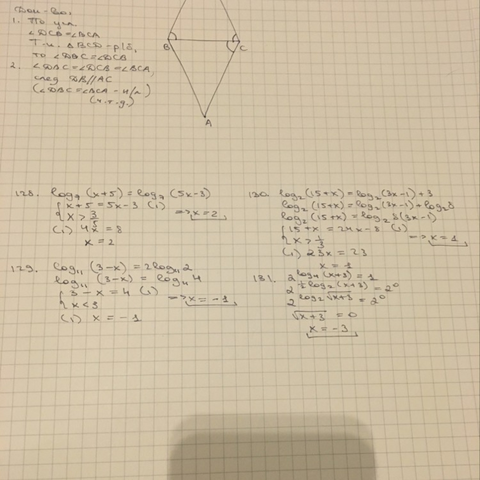 Док-во:
1. По усл
∠DCB=∠BCA
Т.к. △BCD-р/б,
то ∠DBC=∠DCB
2. ∠DBC=∠DCB=∠BCA,
след DB//AC
(∠DBC=∠BCA - н/л)
(ч.т.д.)
B
C
A
128. log₇(x+5)=log₇(5x-3)
{x+5=5x-3 (1)
{x>3/5 => x=2
(1) 4x=8
x=2
129. log₁₁(3-x)=2log₁₁2
log₁₁(3-x)=log₁₁4
{3-x=4 (1)
{x<3 => x=-1
(1) x=-1
130. log₂(15+x)=log₂(3x-1)+3
log₂(15+x)=log₂(3x-1)+log₂8
log₂(15+x)=log₂8(3x-1)
{15+x=24x-8 (1)
{x>1/3 => x=1
(1) 23x=23
x=1
131. 2^log₄(x+3)=1
2^½log₂(x+3)=2⁰
2^log₂√x+3=2⁰
√x+3=0
x=-3